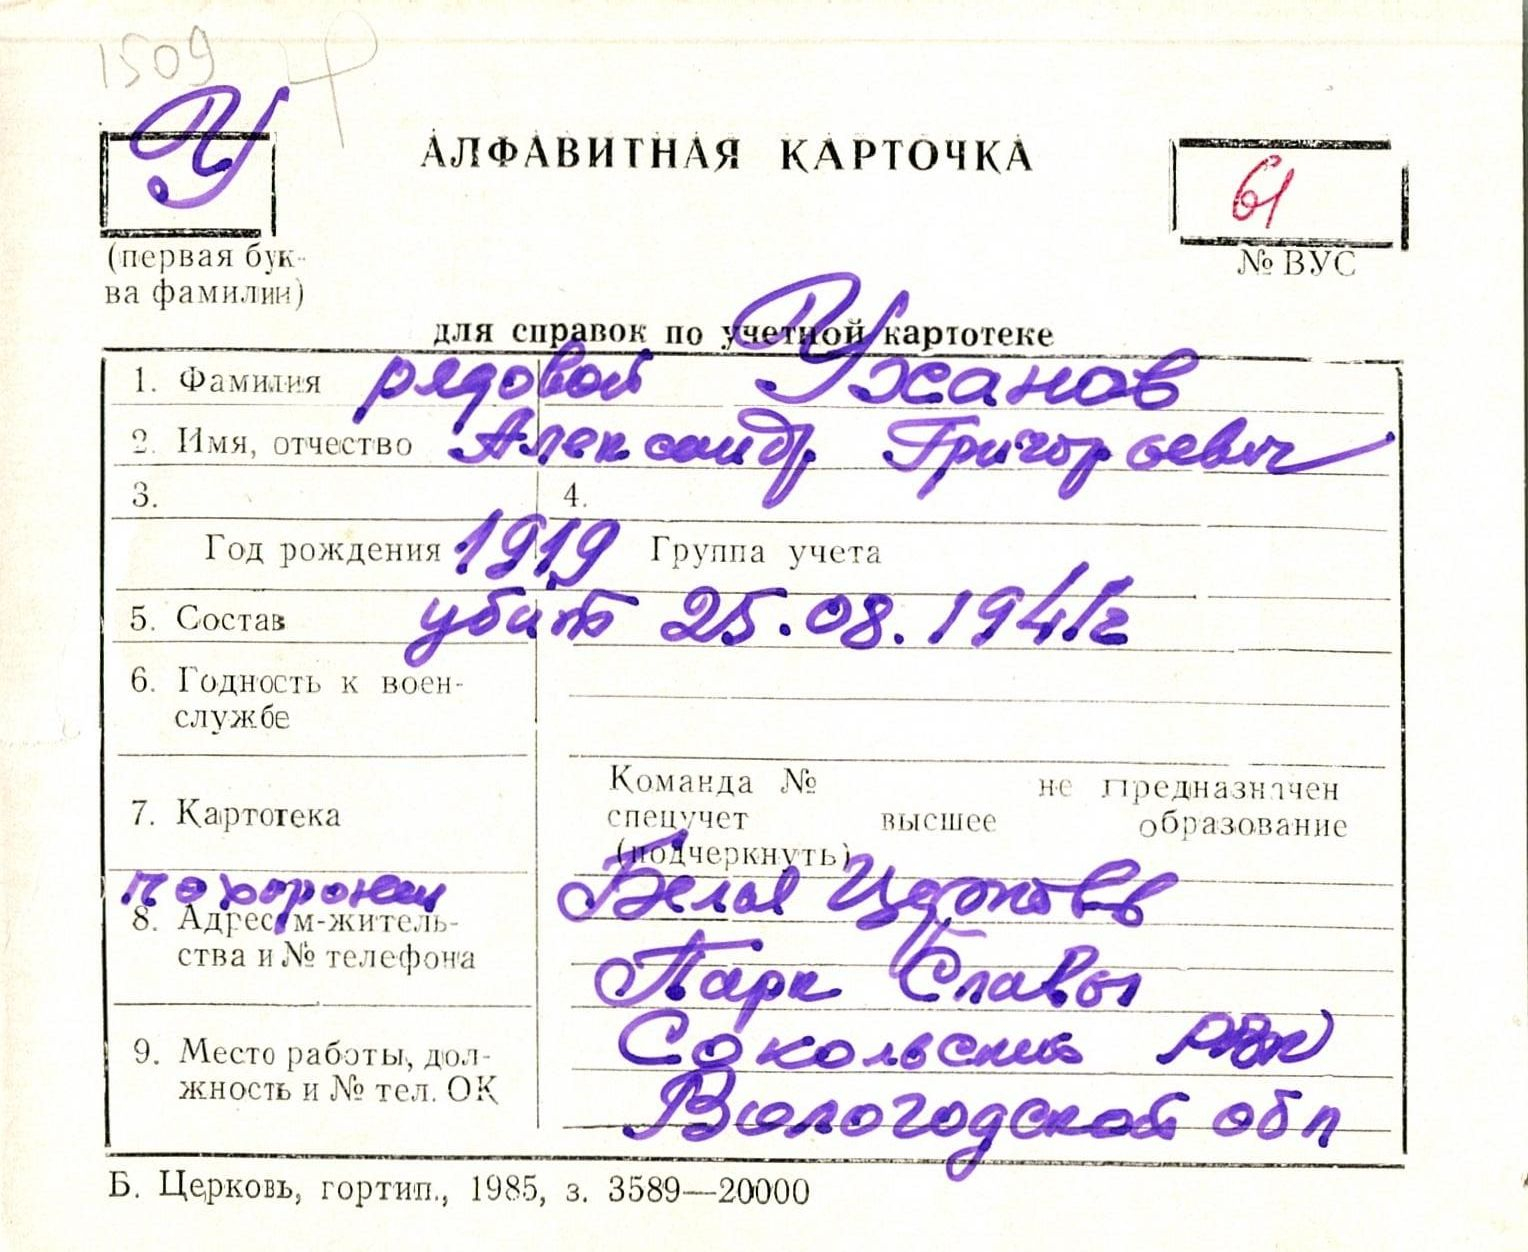 1509
У
АЛФАВИТНАЯ КАРТОЧКА
61
(первая бук-
ва фамилии)
№ ВУС
для справок по учетной картотеке
1. Фамилия рядовой Уханов
2. Имя, отчество Александр Григорьевич
3. 4.
Год рождения 1919 Группа учета
5. Состав убит 25.08.1941г
6. Годность к воен-
службе
Команда № не предназначен
7. Картотека
спецучет высшее образование
(подчеркнуть)
похоронен Белая Церковь
8. Адрес м-житель-
ства и № телефона
Парк Славы
9. Место работы, дол-
жность и № тел. ОК
Сокольским РВК
Вологодской обл
Б. Церковь, гортип., 1985, з. 3589—20000